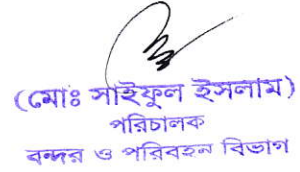 (মোঃ সাইফুল ইসলাম)
পরিচালক
বন্দর ও পরিবহন বিভাগ